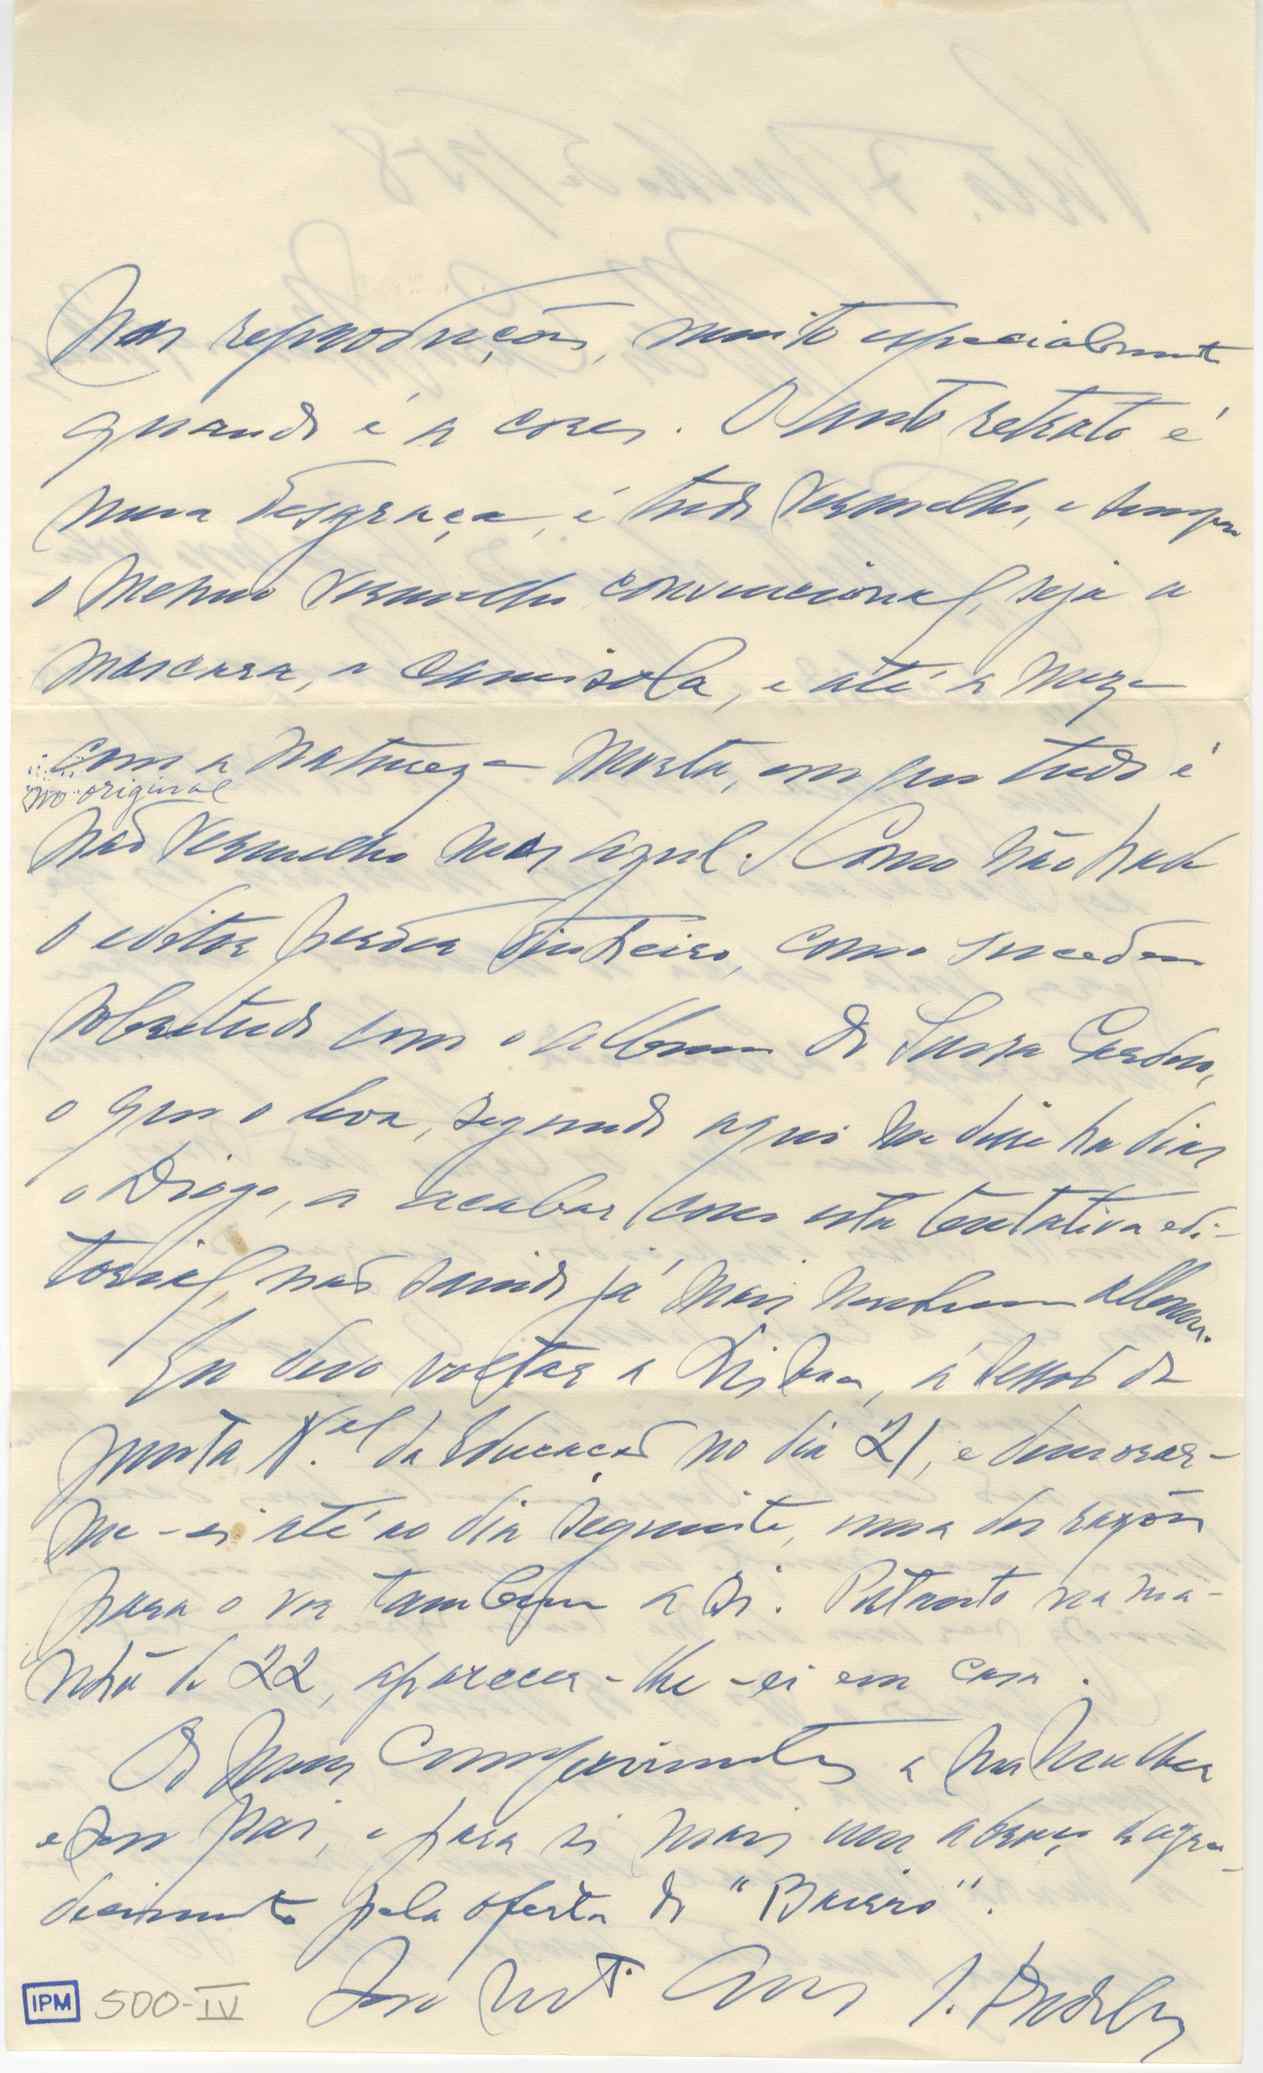 nas reproduções, muito especialmente
quando é a cores. O auto retrato é
uma desgraça, é tudo vermelho, e sempre
o mesmo vermelho convencional, seja a
mascara, a camisola, e até a meza
com a natureza morta, em que tudo é
no original
não vermelho mas azul. Como não hade
o editor perder dinheiro, como sucedeu
sobretudo com o album do Souza Cardoso,
o que o leva, segundo aqui me disse ha dias
o Diogo, a acabar com esta tentativa edi-
torial, não saindo já mais nenhum album.
Eu devo voltar a Lisboa, á sessão da
Junta N.al da Educação no dia 21, e demorar-
me-ei até ao dia seguinte, uma das razões
para o ver tambem a Si. Portanto na ma-
nhã de 22, aparecer-lhe-ei em casa.
Os meus comprimentos a sua Mulher
e seu pai, e para si mais um abraço de agra-
decimento pela oferta do "Bueiro".
IPM 500-IV